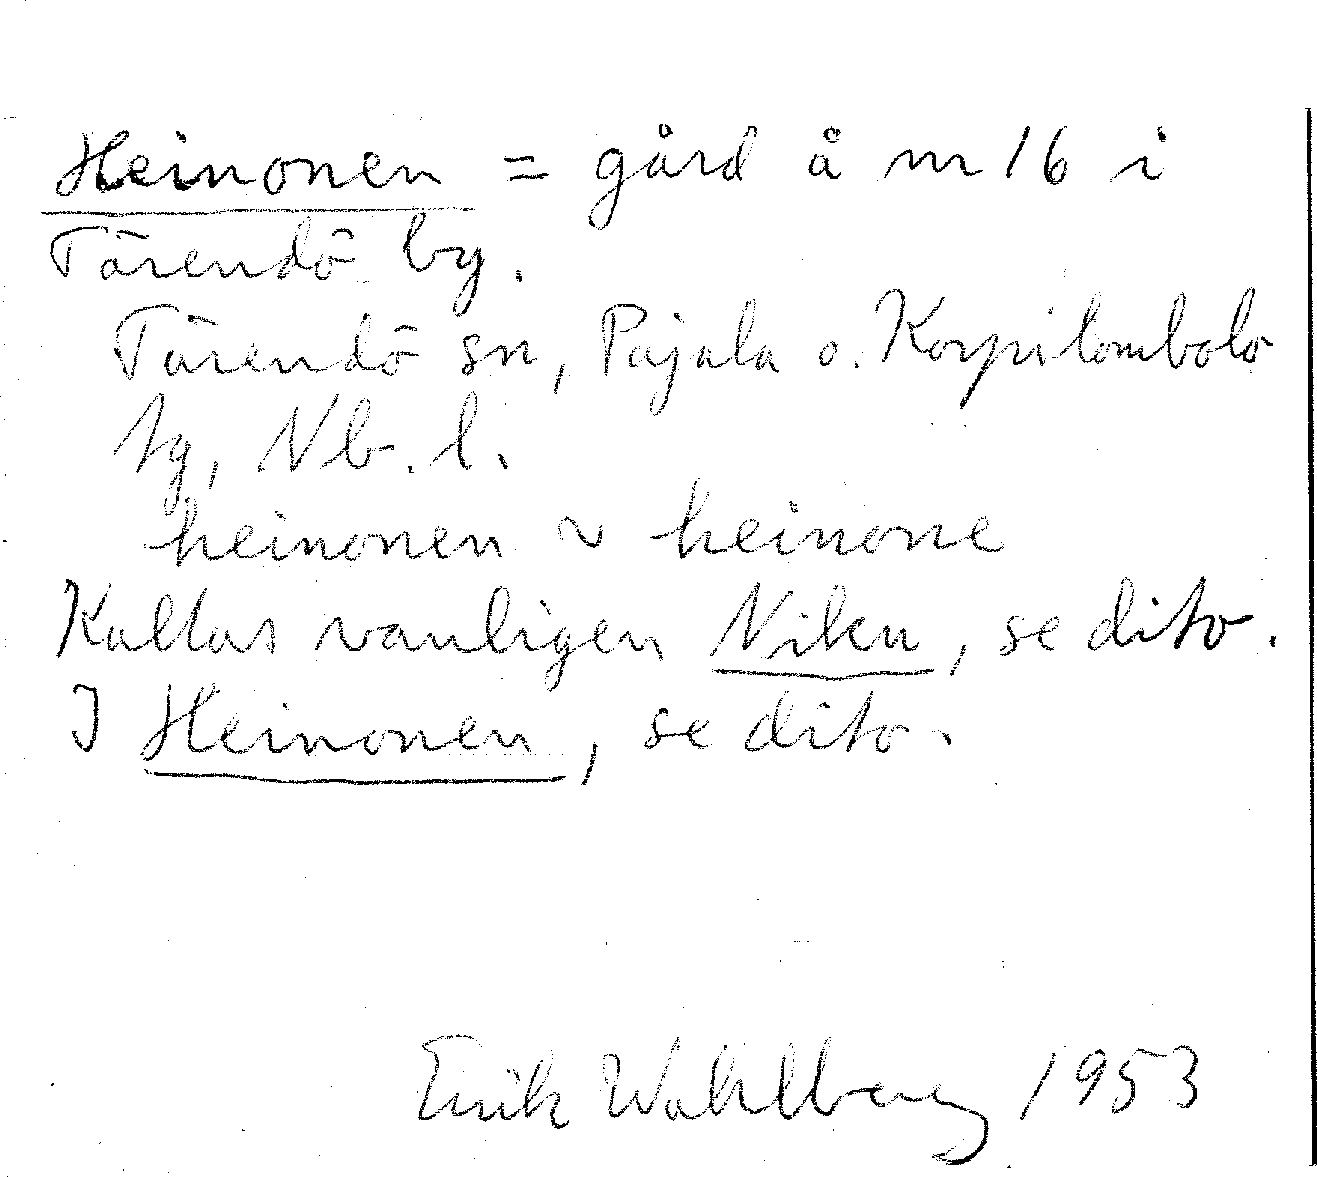 Heinonen = gård å nr 16 i
Tärendö by.
Tärendö sn, Pajala o. Korpilombolo
tg, Nb. l.
heinonen ~ heinone
Kallas vanligen Niku, se dito.
I Heinonen, se dito.
Erik Wahlberg 1953